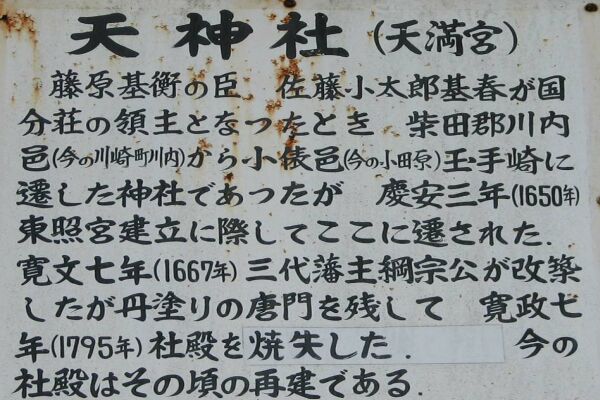 天神社(天満宮)
藤原基衡の臣 佐藤小太郎基春が国
分荘の領主となつたとき 柴田郡川内
邑(今の川崎町川内)から小俵邑(今の小田原)玉手崎に
遷した神社であつたが 慶安三年(1650年)
東照宮建立に際してここに遷された.
寛文七年(1667年)三代藩主綱宗公が改築
したが丹塗りの唐門を残して 寛政七
年(1795年)社殿を焼失した. 今の
社殿はその頃の再建である.